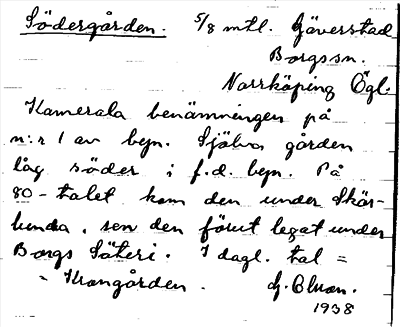 Södergården. 5/8 mtl. Gäverstad
Borgs sn.
Norrköping Ögl.
Kamerala benämningen på
n:r 1 av byn. Själva gården
låg söder i f.d. byn. På
80-talet kom den under Skär-
lunda, sen den förut legat under
Borgs Säteri. I dagl. tal =
= Krongården. G.
1938